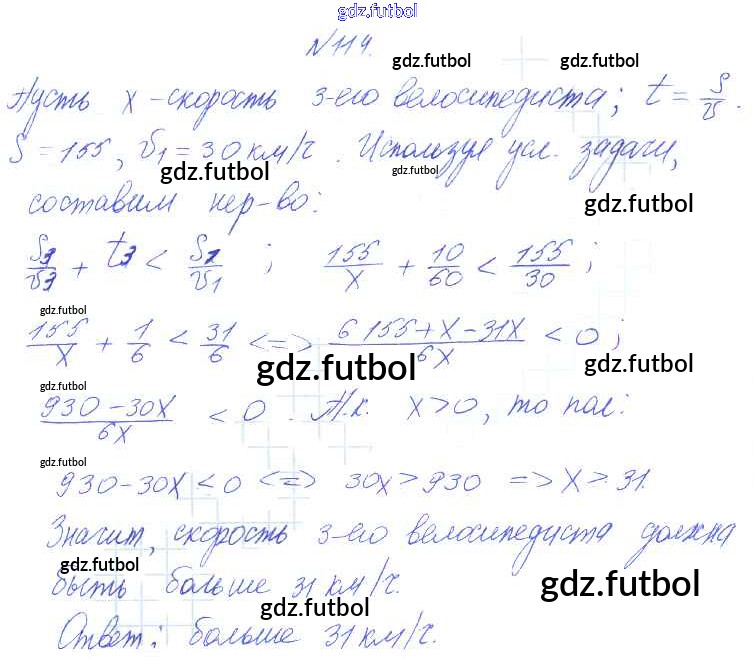 gdz.futbol
№114.
gdz.futbol gdz.futbol
Пусть x - скорость 3-его велосипедиста; t = S/v.
S = 155, v₁ = 30 км/ч. Используя усл. задачи,
gdz.futbol gdz.futbol
составим нер-во:
gdz.futbol
S₃/v₃ + t₃ < S₁/v₁ ; 155/x + 10/60 < 155/30 ;
gdz.futbol
155/x + 1/6 < 31/6 <=> 6 155 + x - 31x / 6x < 0 ;
gdz.futbol gdz.futbol
gdz.futbol
930 - 30x / 6x < 0 . Т.к. x > 0, то пол:
gdz.futbol
930 - 30x < 0 <=> 30x > 930 => x > 31.
Значит, скорость 3-его велосипедиста должна
gdz.futbol
быть больше 31 км/ч.
gdz.futbol gdz.futbol
Ответ: больше 31 км/ч.